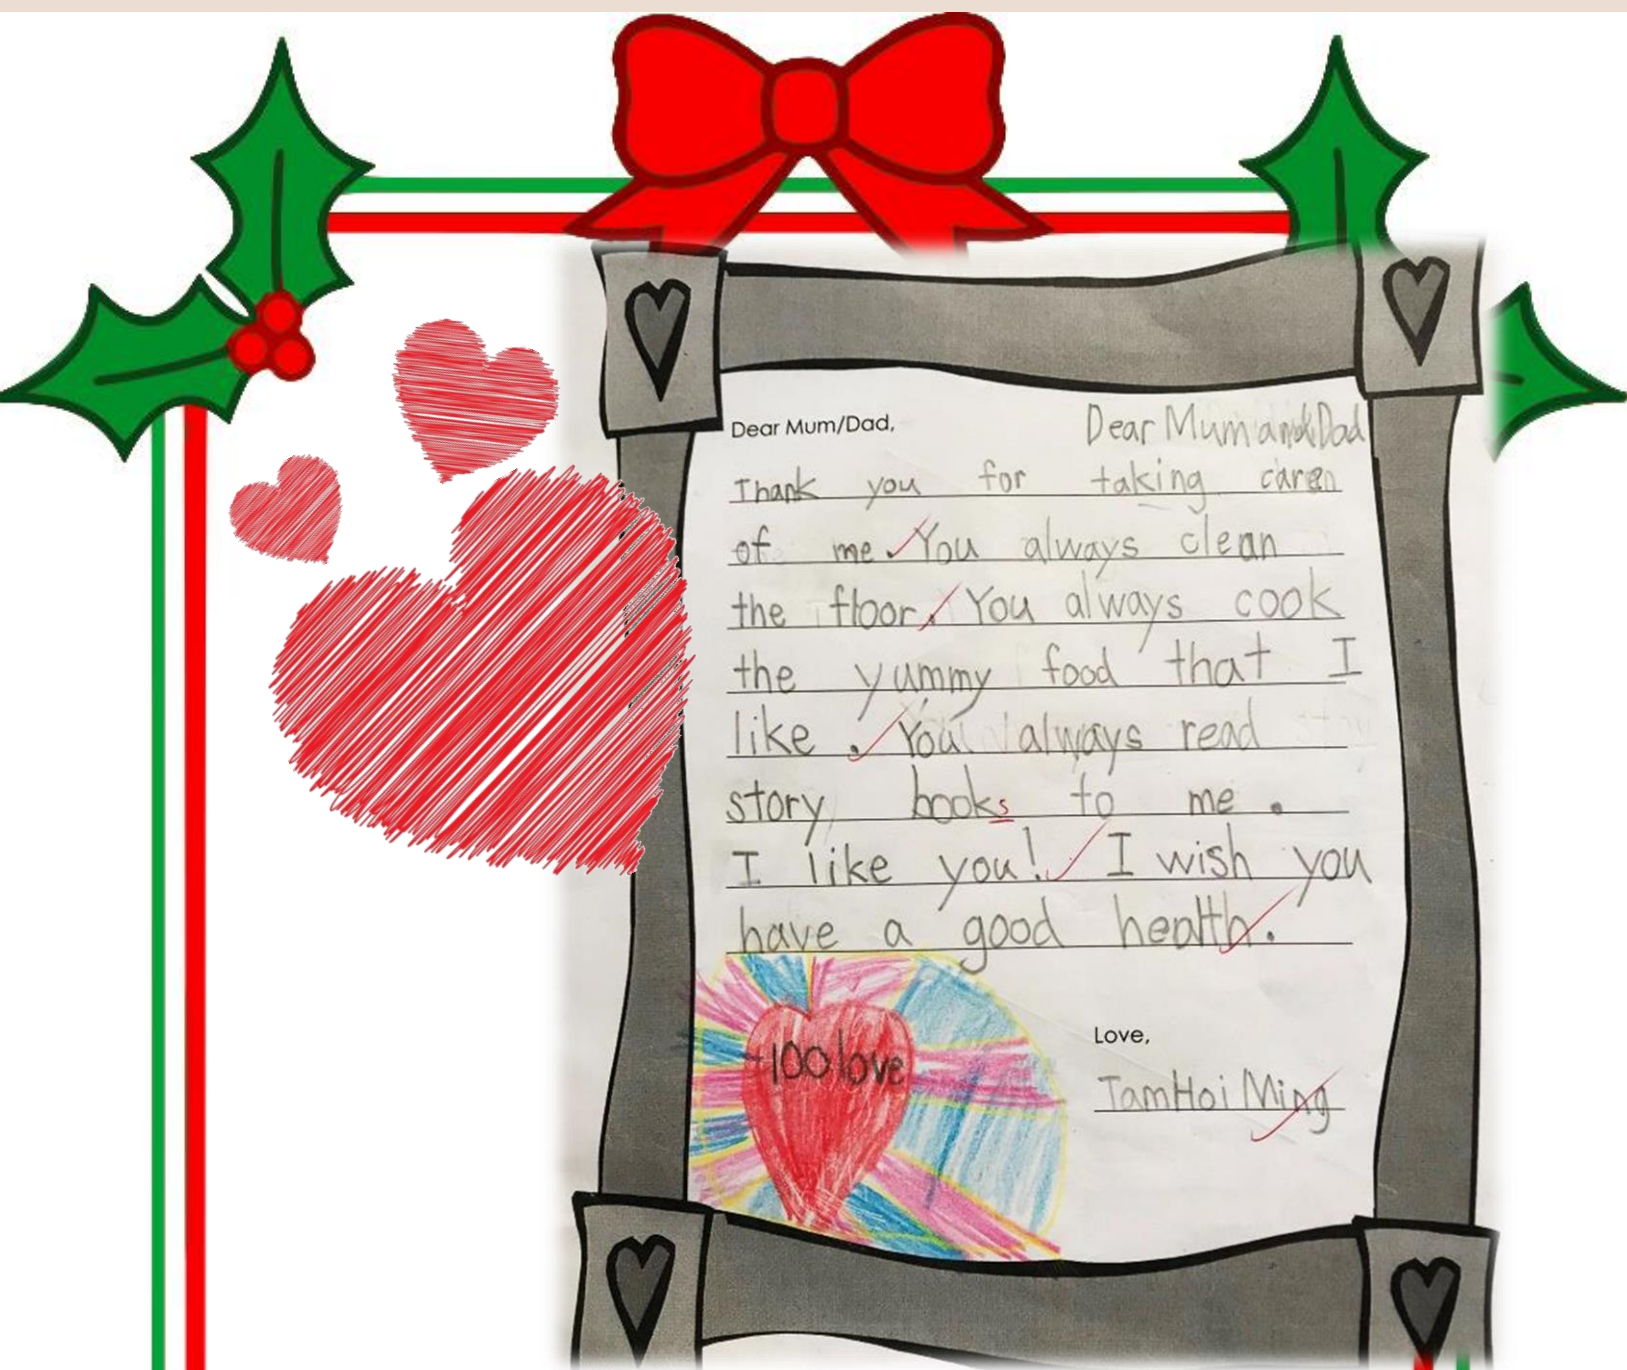 Dear Mum/Dad, Dear Mum and Dad
Thank you for taking care
of me. You always clean
the floor. You always cook
the yummy food that I
like. You always read
story books to me.
I like you! I wish you
have a good health.
100 love
Love,
Tam Hoi Ming